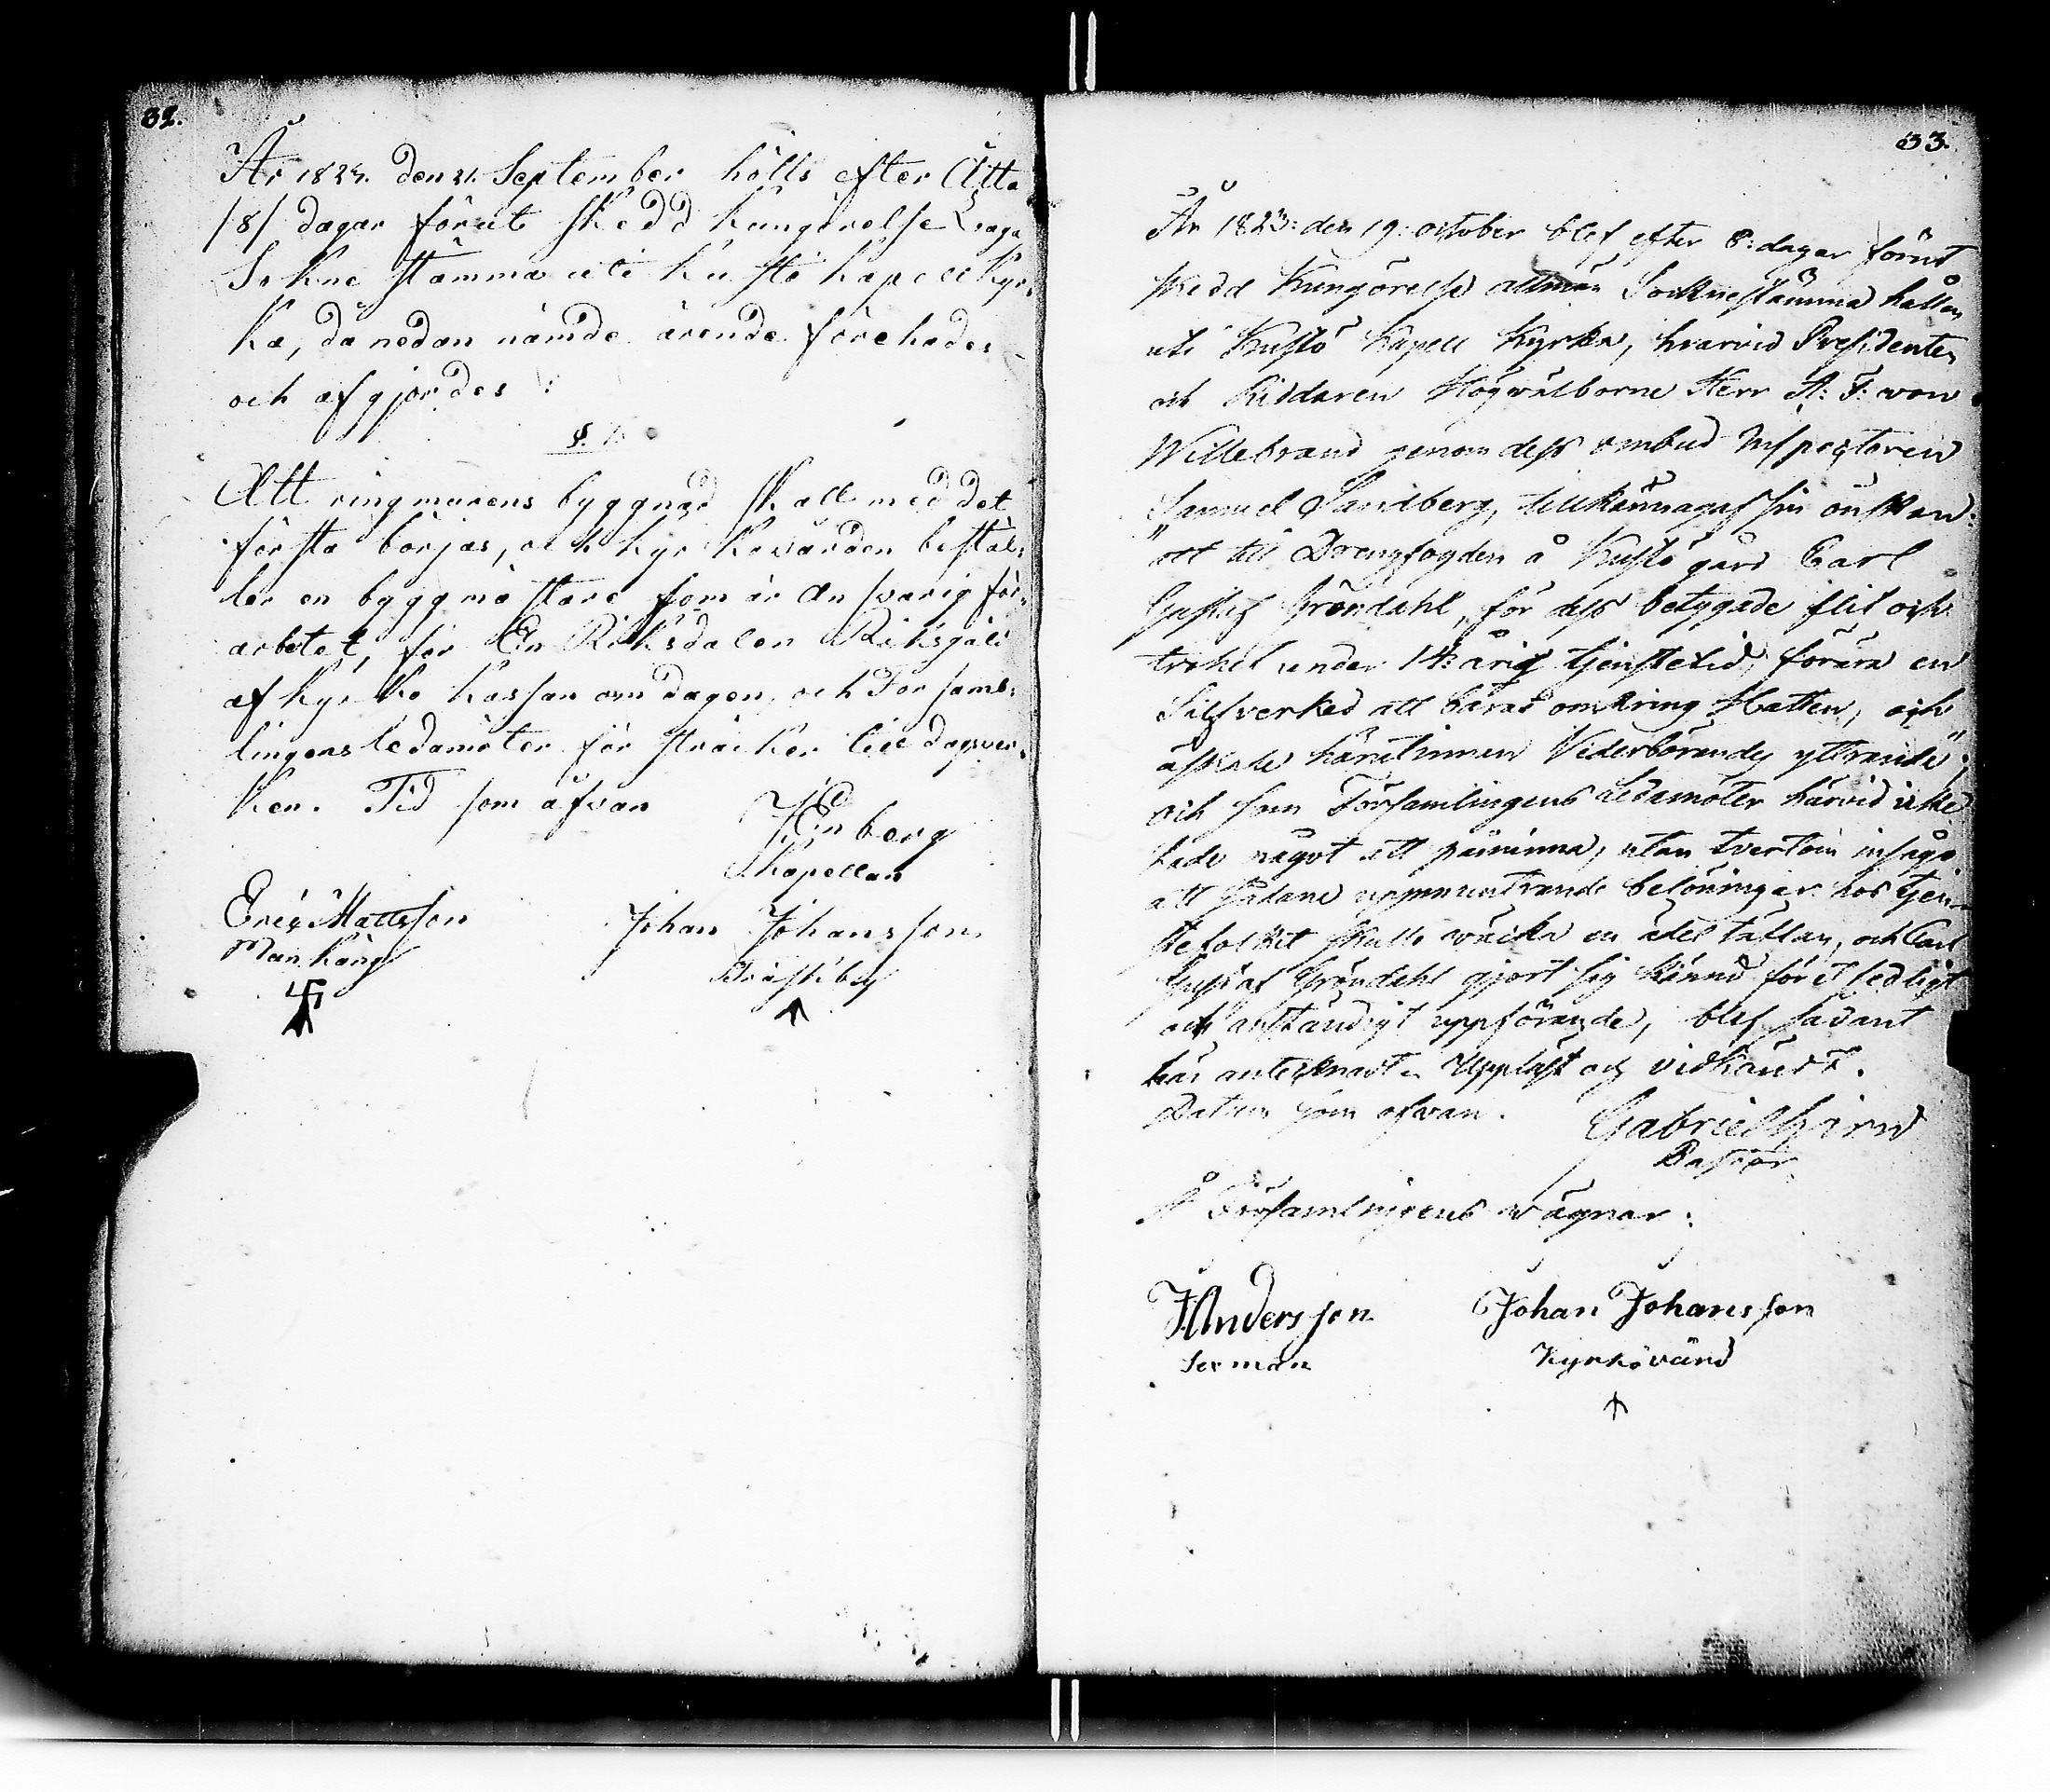 32.
År 1823. den 21. September hölls efter Åtta
/8/ dagar förut skedd kungörelse laga
Sokne stämma uti Kustö Kapell kyr-
ka, då nedan nämde ärende förehades
och afgjordes:
§. 1.
Att ringmurens byggnad skall med det
första börjas, och kyrkovärden bestäl-
ler en byggmästare som är Ansvarig för
arbetet, för En Riksdaler Riksgäld
af kyrko kassan om dagen, och Försam-
lingens ledamöter för sträcker till dagsver-
ken. Tid som åfvan
Enberg
Kapellan
Eric Mattsson
Mankäng
Johan Johansson
Träskby
33.
År 1823: den 19: october blef efter 8: dagar förut
skedd Kungörelse allmän Socknestämma hållen
uti Kustö Kapell Kyrka, hvarvid Presidenten
och Riddaren Högvälborne Herr A: F: von
Willebrand genom dess ombud Inspectoren
Samuel Sandberg, tillkännagaf sin önskan
"att till Drengfogden å Kustö gård Carl
Gustaf Gröndahl, för dess betygade flit och
trohet under 14: årig tjenstetid, förära en
Silfverked att båras omkring Hatten, och
äskade härutinnan Vederbörandes yttrande";
och som Församlingens Ledamöter härvid icke
hade något att påminna, utan tvertom insågo
att sådane uppmuntrande belöningar hos tjen-
stefolket skulle väcka en ädel täflan, och Carl
Gustaf Gröndahl gjort sig känd för et sedligt
och anständigt uppförande, blef sådant
här antecknadt. Uppläst och vidkändt.
Datum som ofvan.
Gabriel Hirn
Pastor
Å Församlingens vägnar:
J. Andersson
Sexman
Johan Johansson
Kyrkovärd